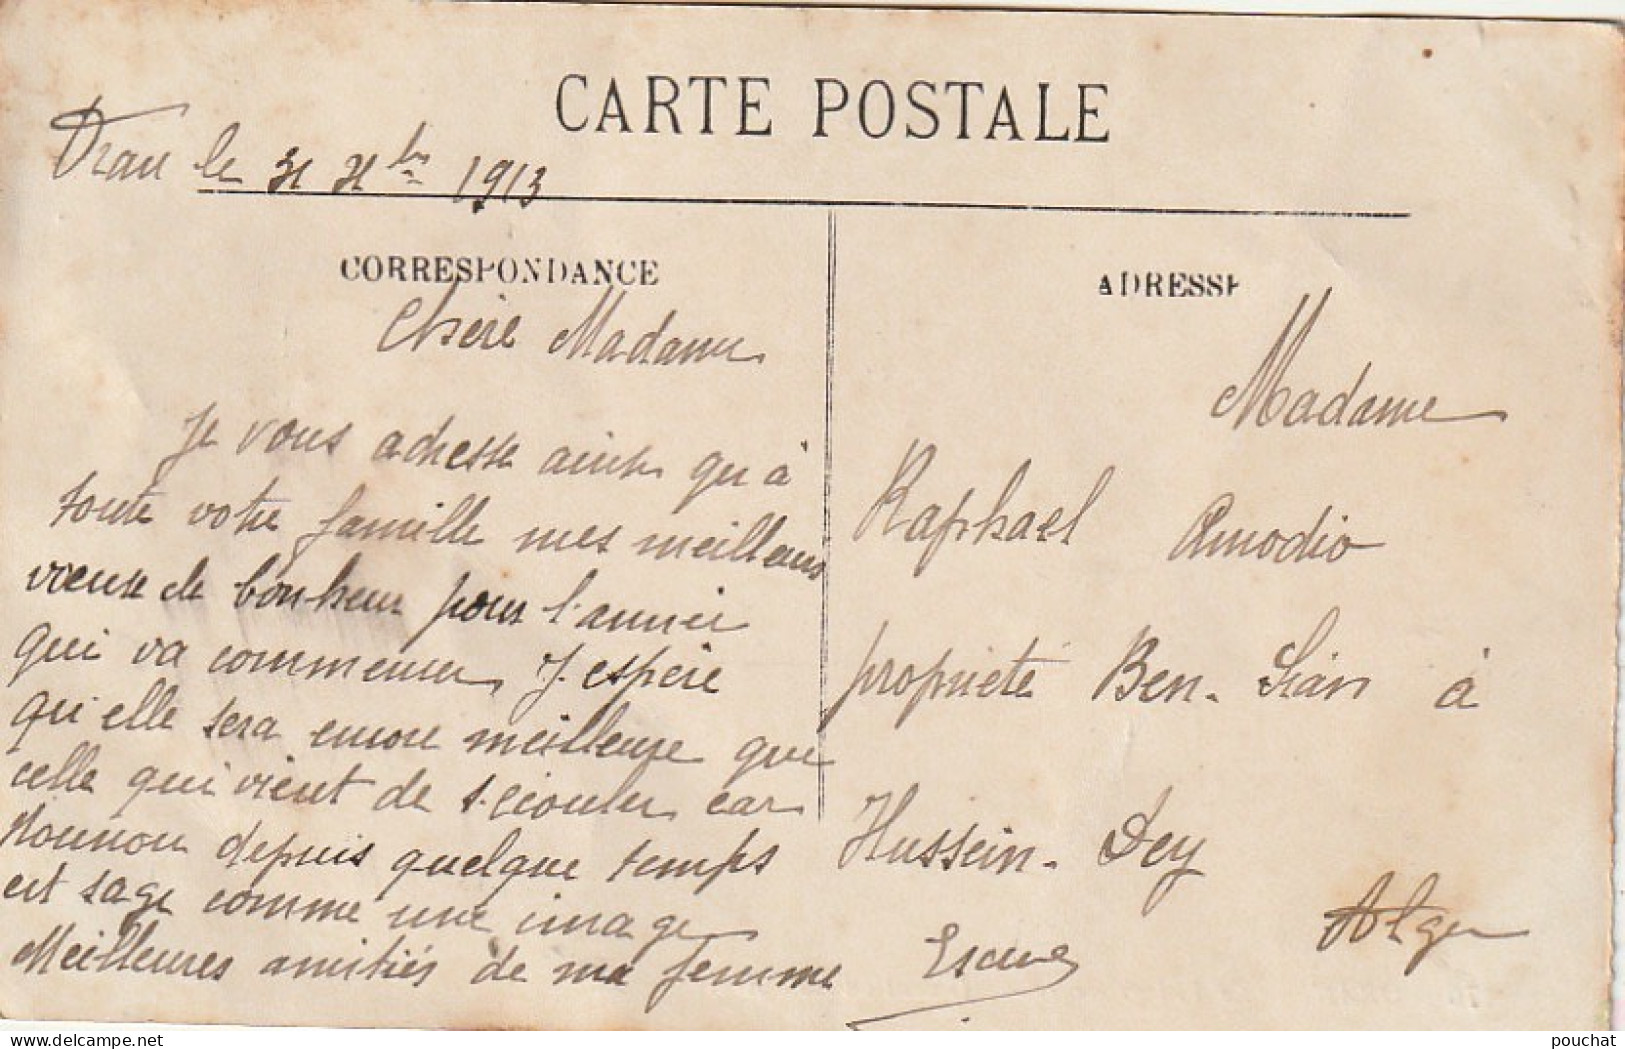 CARTE POSTALE
Oran le 31 Xbre 1913
CORRESPONDANCE
Chère Madame
Je vous adresse ainsi qu'à
toute votre famille mes meilleurs
voeux de bonheur pour l'année
qui va commencer. J'espère
qu'elle sera encore meilleure que
celle qui vient de s'écouler car
Nounou depuis quelque temps
est sage comme une image
Meilleures amitiés de ma femme
ADRESSE
Madame
Raphael Amodio
propriété Ben-Sian à
Hussein-Dey
Alger
pouchat